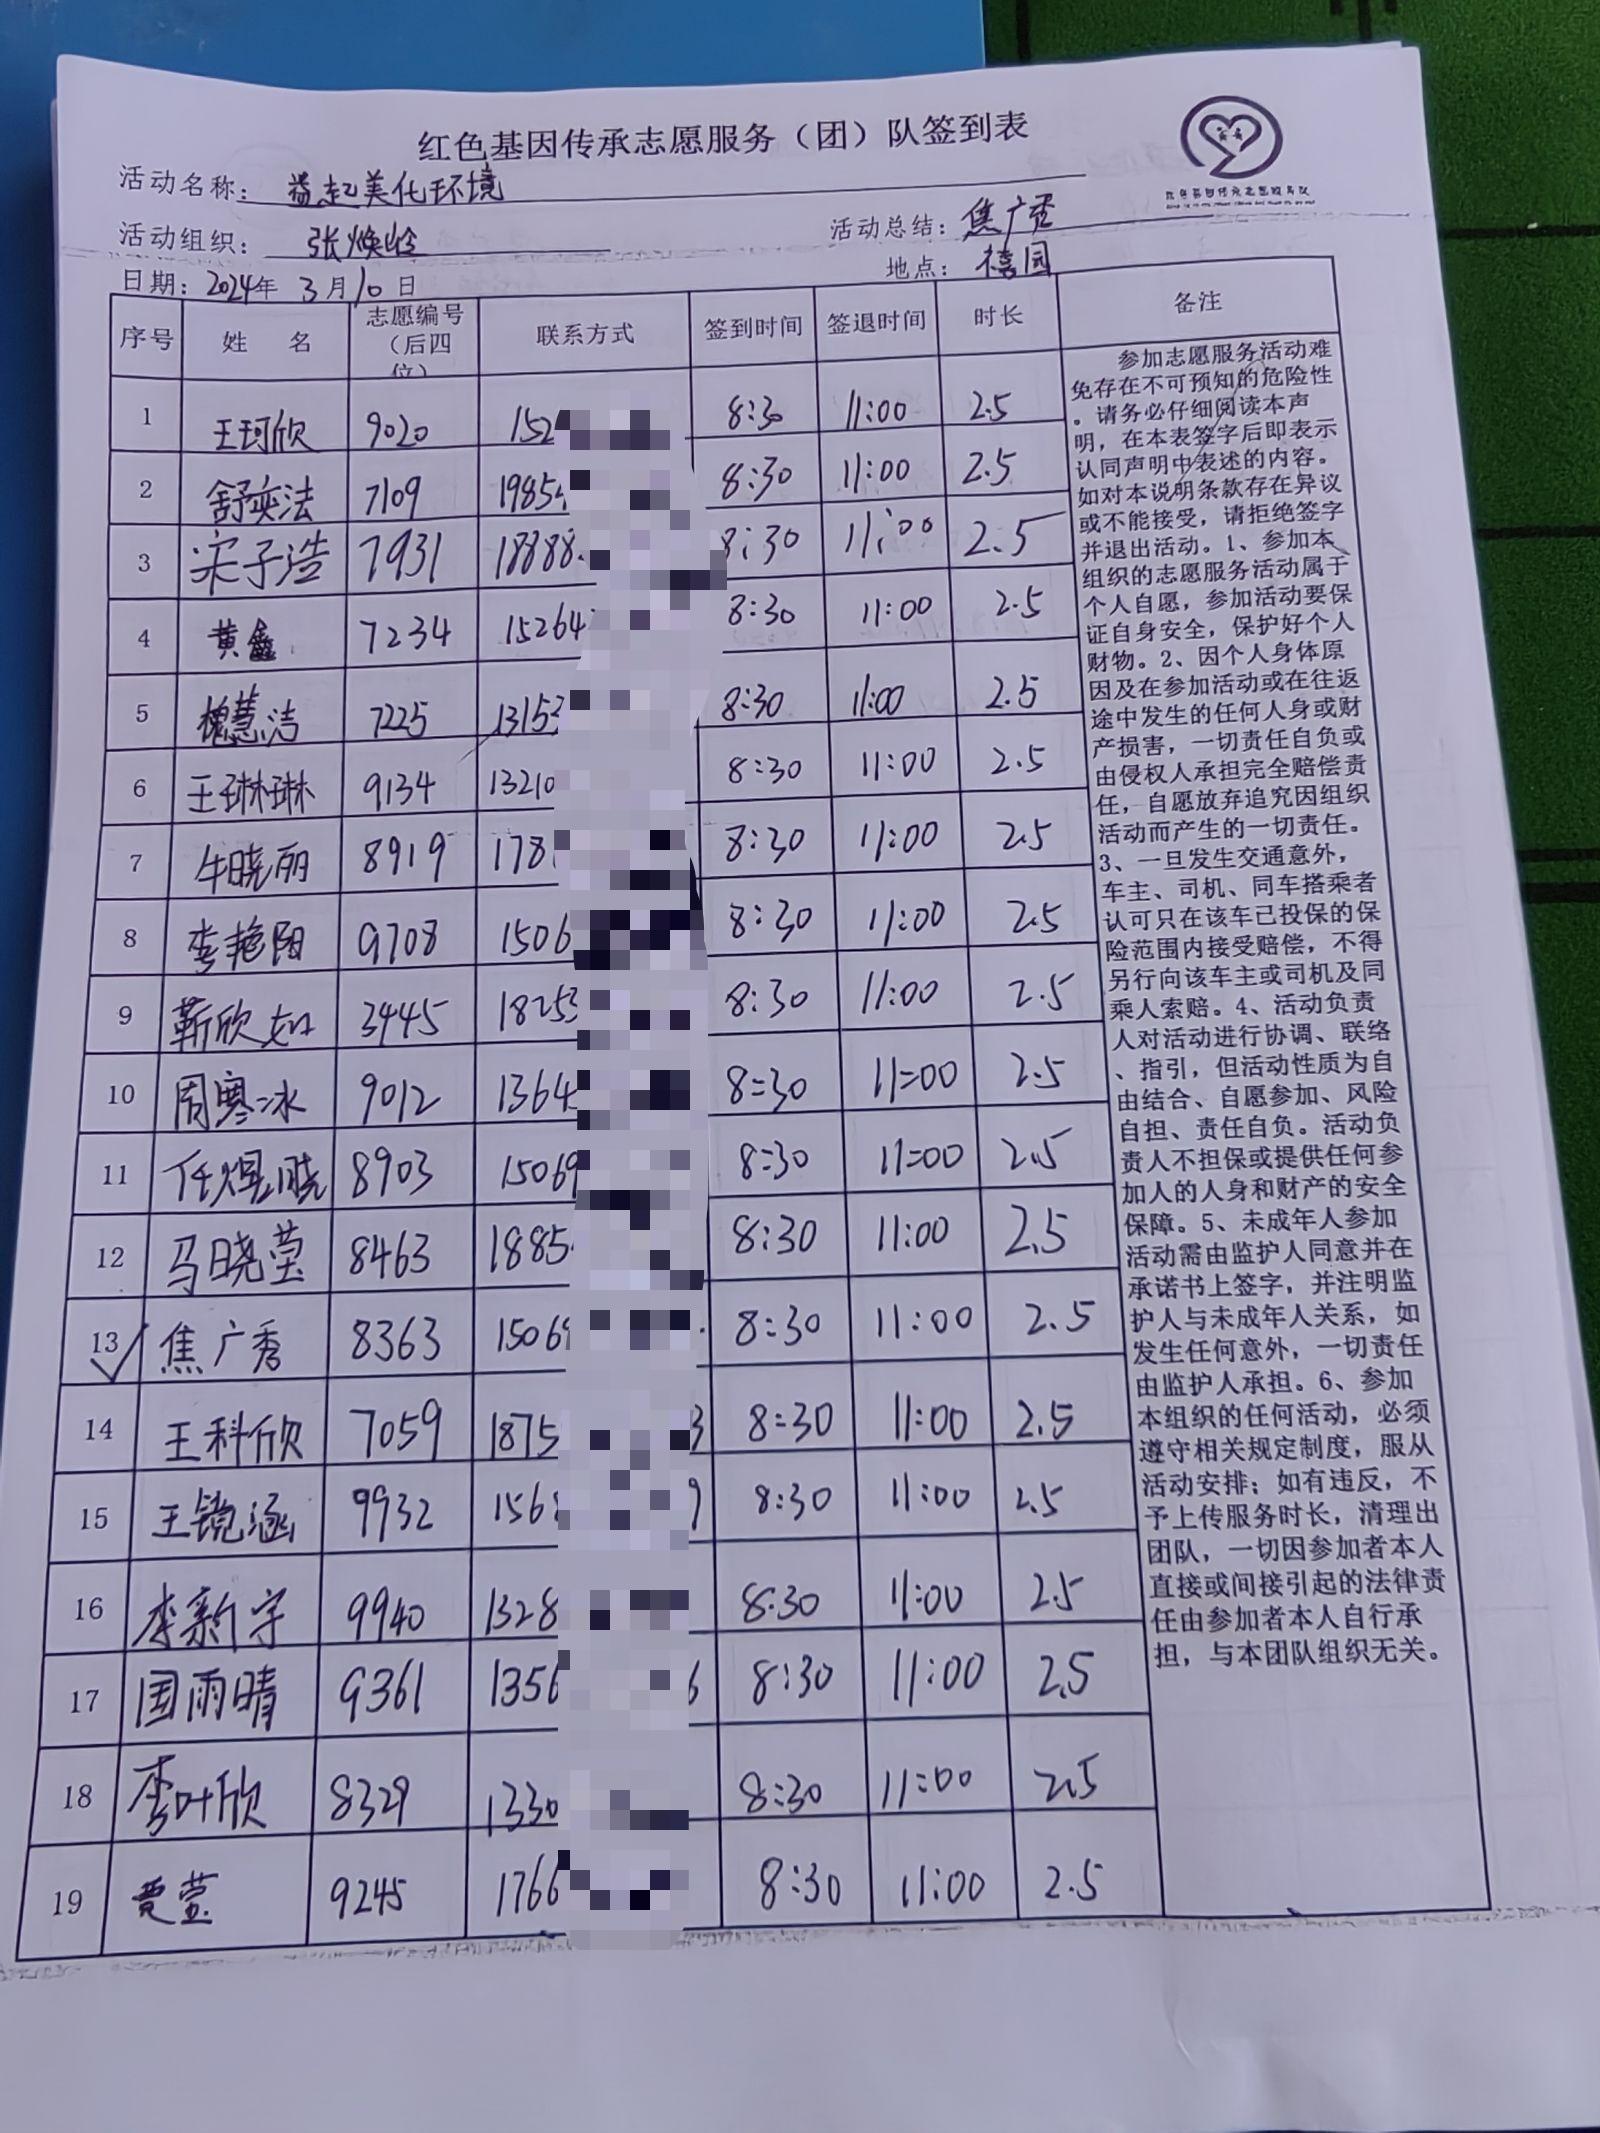 红色基因传承志愿服务（团）队签到表
活动名称： 益起美化环境
活动组织： 张焕岭 活动总结：焦广秀
日期：2024年 3月10日 地点： 禧园
序号 姓 名 志愿编号（后四位） 联系方式 签到时间 签退时间 时长 备注
1 王珂欣 9020 152 8:30 11:00 2.5
2 舒奕法 7109 1985 8:30 11:00 2.5
3 宋子浩 7931 18888 8:30 11:00 2.5
4 黄鑫 7234 15264 8:30 11:00 2.5
5 槐慧洁 7225 13153 8:30 11:00 2.5
6 王琳琳 9134 13210 8:30 11:00 2.5
7 牛晓丽 8919 178 8:30 11:00 2.5
8 李艳阳 9708 1506 8:30 11:00 2.5
9 靳欣如 3445 18253 8:30 11:00 2.5
10 周寒冰 9012 1364 8:30 11:00 2.5
11 任煜晓 8903 15069 8:30 11:00 2.5
12 马晓莹 8463 1885 8:30 11:00 2.5
13 焦广秀 8363 15069 8:30 11:00 2.5
14 王科欣 7059 1875 3 8:30 11:00 2.5
15 王镜涵 9932 156 9 8:30 11:00 2.5
16 李新宇 9940 1328 8:30 11:00 2.5
17 国雨晴 9361 1356 6 8:30 11:00 2.5
18 李叶欣 8329 1330 8:30 11:00 2.5
19 贾萱 9245 1766 8:30 11:00 2.5
参加志愿服务活动难
免存在不可预知的危险性
。请务必仔细阅读本声
明，在本表签字后即表示
认同声明中表述的内容。
如对本说明条款存在异议
或不能接受，请拒绝签字
并退出活动。1、参加本
组织的志愿服务活动属于
个人自愿，参加活动要保
证自身安全，保护好个人
财物。2、因个人身体原
因及在参加活动或在往返
途中发生的任何人身或财
产损害，一切责任自负或
由侵权人承担完全赔偿责
任，自愿放弃追究因组织
活动而产生的一切责任。
3、一旦发生交通意外，
车主、司机、同车搭乘者
认可只在该车已投保的保
险范围内接受赔偿，不得
另行向该车主或司机及同
乘人索赔。4、活动负责
人对活动进行协调、联络
、指引，但活动性质为自
由结合、自愿参加、风险
自担、责任自负。活动负
责人不担保或提供任何参
加人的人身和财产的安全
保障。5、未成年人参加
活动需由监护人同意并在
承诺书上签字，并注明监
护人与未成年人关系，如
发生任何意外，一切责任
由监护人承担。6、参加
本组织的任何活动，必须
遵守相关规定制度，服从
活动安排；如有违反，不
予上传服务时长，清理出
团队，一切因参加者本人
直接或间接引起的法律责
任由参加者本人自行承
担，与本团队组织无关。